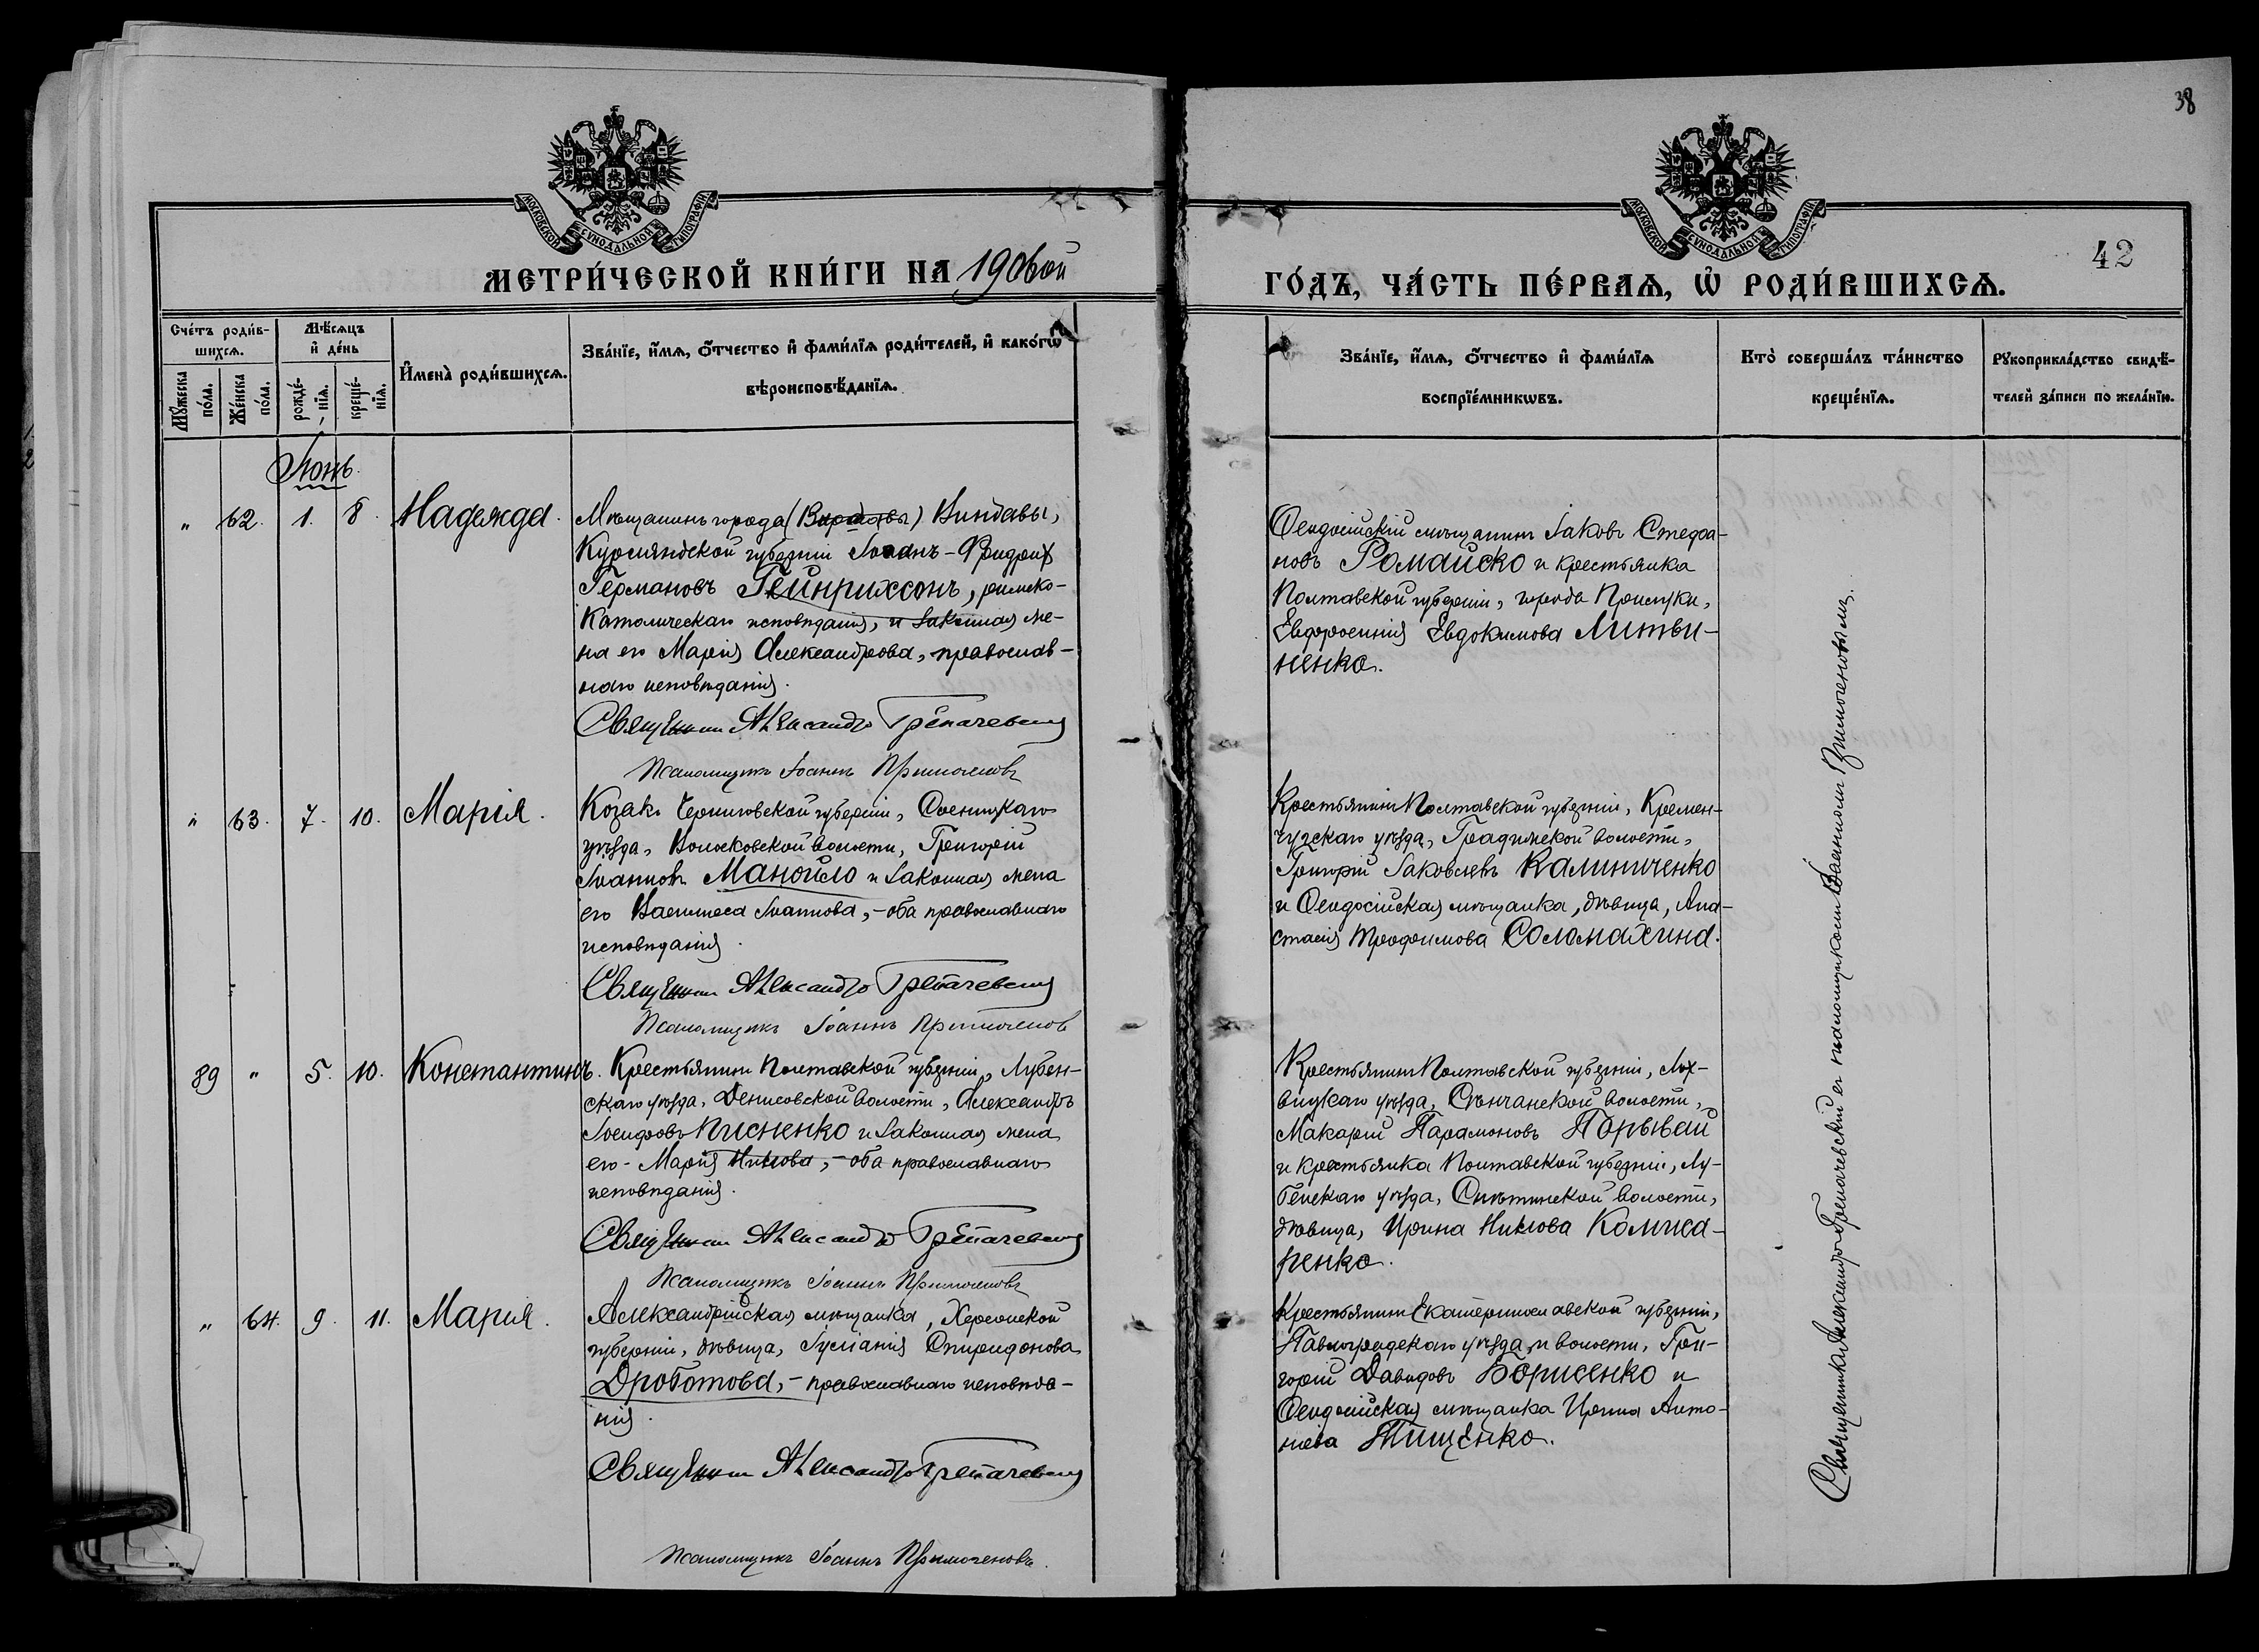 38
МОСКОВСКОЙ СѴНОДАЛЬНОЙ ТИПОГРАФІИ.
МОСКОВСКОЙ СѴНОДАЛЬНОЙ ТИПОГРАФІИ.
42
МЕТРИ́ЧЕСКОЙ КНИ́ГИ НА 190вой
ГО́ДЪ, ЧА́СТЬ ПЕ́РВАѦ, Ѽ РОДИ́ВШИХСѦ.
Сче́тъ роди́в-
шихсѧ.
Мꙋ́жеска по́ла.
Же́нска по́ла.
Мѣ́сѧцъ
и҆ де́нь
рожде́-
нїѧ.
креще́-
нїѧ.
И҆мена̀ роди́вшихсѧ.
Зва́нїе, и҆́мѧ, ѻ҆́тчество и҆ фами́лїѧ роди́телей, и҆ како́гѡ
вѣроисповѣ́данїѧ.
Зва́нїе, и҆́мѧ, ѻ҆́тчество и҆ фами́лїѧ
воспрїе́мникѡвъ.
Кто̀ соверша́лъ та́инство
креще́нїѧ.
Рꙋкоприкла́дство свидѣ́-
телей за́писи по жела́нїю.
Іюнь.
" 62. 1. 8. Надежда.
Мѣщанинъ города () Виндавы,
Курляндской губерніи Іоаннъ-Фридрих
Германовъ Гейнрихсонъ, римско-
католическаго исповѣданія, и законная же-
на его Марія Александрова, православ-
наго исповѣданія.
Священник Александръ Трепачевскій
Псаломщикъ Іоаннъ Примоченовъ
Ѳеодосійскій мѣщанинъ Іаковъ Стефа-
новъ Романско и крестьянка
Полтавской губерніи, города Прилуки,
Евфросинія Евдокимова Литви-
ненко.
" 63. 7. 10. Марія.
Козакъ Черниговской губерніи, Сосницкаго
уѣзда, Волосковской волости, Григорій
Іоанновъ Манойло и законная жена
его Василиса Іоаннова, - оба православнаго
исповѣданія.
Священник Александръ Трепачевскій
Псаломщикъ Іоаннъ Примоченовъ
Крестьянинъ Полтавской губерніи, Кремен-
чугскаго уѣзда, Градижской волости,
Григорій Іаковлевъ Калиниченко
и Ѳеодосійская мѣщанка, дѣвица, Ана-
стасія Трофимова Соломахина.
89 " 5. 10. Константинъ.
Крестьянинъ Полтавской губерніи, Лубен-
скаго уѣзда, Денисовской волости, Александръ
Іосифовъ Писненко и законная жена
его - Марія Никлова, - оба православнаго
исповѣданія.
Священник Александръ Трепачевскій
Псаломщикъ Іоаннъ Примоченовъ
Крестьянинъ Полтавской губерніи, Лох-
вицкаго уѣзда, Сѣнчанской волости,
Макарій Парамоновъ Порывай
и крестьянка Полтавской губерніи, Лу-
бенскаго уѣзда, Снѣтинской волости,
дѣвица, Ирина Никлова Комиса-
ренко.
" 64. 9. 11. Марія.
Александрійская мѣщанка, Херсонской
губерніи, дѣвица, Іуліанія Спиридонова
Дроботова, - православнаго исповѣда-
нія.
Священник Александръ Трепачевскій
Псаломщикъ Іоаннъ Примоченовъ.
Крестьянинъ Екатеринославской губерніи,
Павлоградскаго уѣзда и волости, Гри-
горій Давидовъ Борисенко и
Ѳеодосійская мѣщанка Ирина Анто-
нieва Тищенко.
Священникъ Александръ Трепачевскій съ псаломщикомъ Іоанномъ Примоченовымъ.